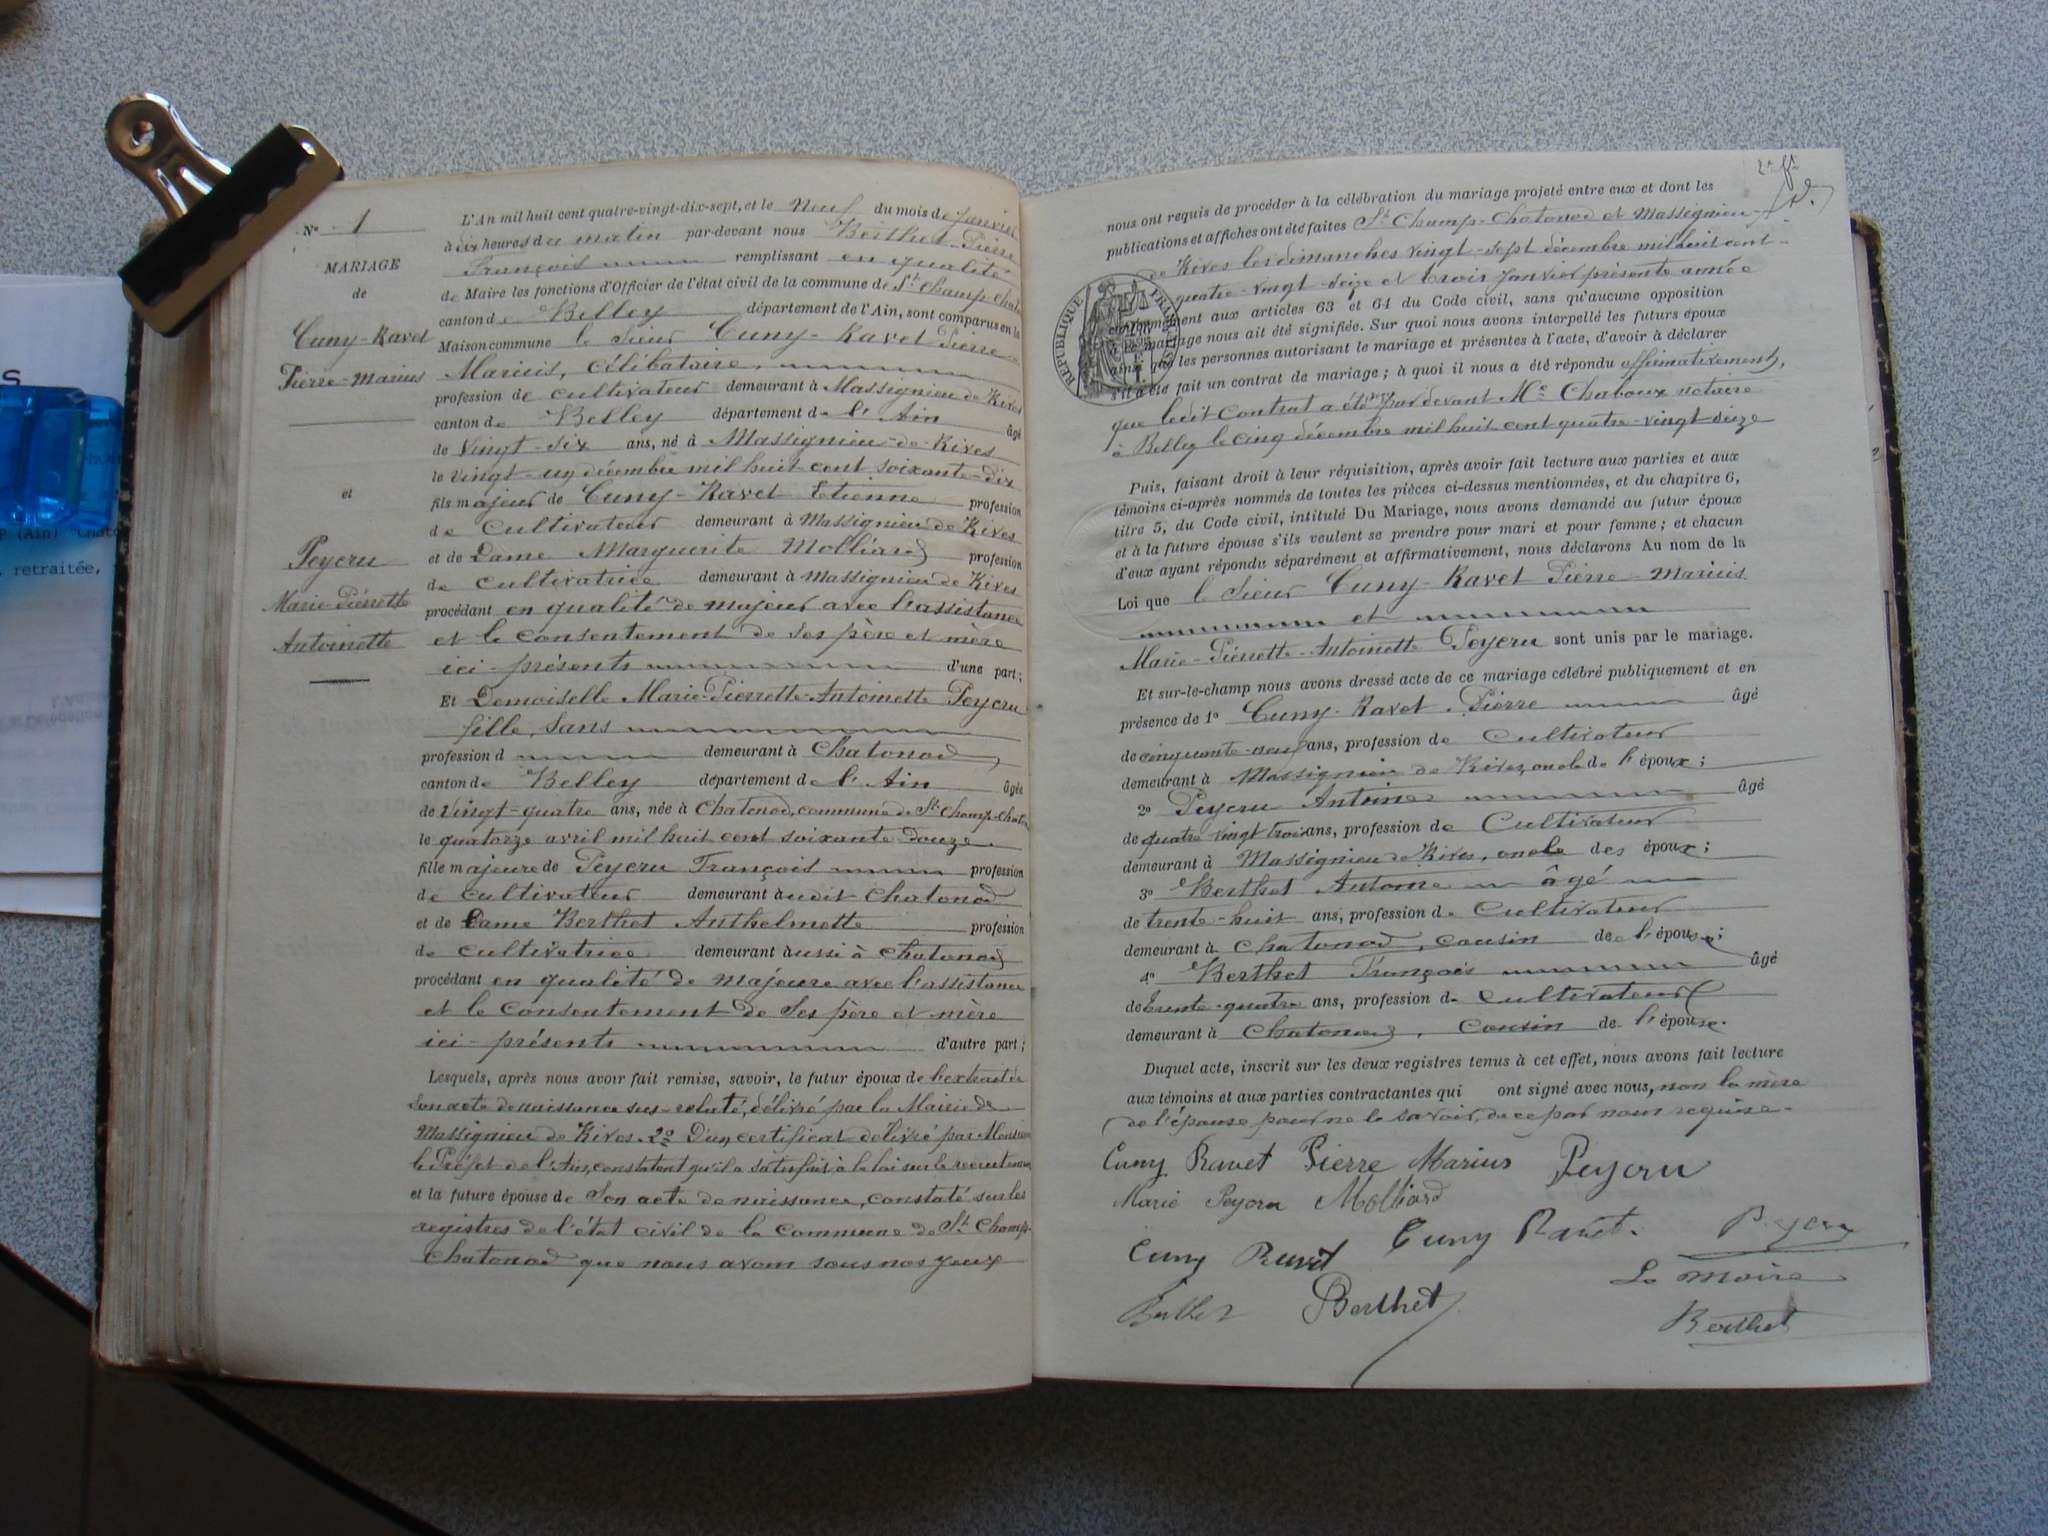 Nº 1
MARIAGE
de
Cuny-Ravet
Pierre-Marius
et
Peycru
Marie-Pierrette
Antoinette
L'An mil huit cent quatre-vingt-dix-sept, et le neuf du mois de Janvier
à dix heures du matin par-devant nous Berthet Pierre
François remplissant en qualité
de Maire les fonctions d'Officier de l'état civil de la commune de St Champ-Chat
canton de Belley département de l'Ain, sont comparus en la
Maison commune le Sieur Cuny-Ravet Pierre
Marius, célibataire,
profession de cultivateur demeurant à Massignieu de Rives
canton de Belley département de l'Ain âgé
de vingt-six ans, né à Massignieu-de-Rives
le vingt-un décembre mil huit cent soixante-dix
fils majeur de Cuny-Ravet Etienne profession
de cultivateur demeurant à Massignieu de Rives
et de Dame Marguerite Molliard profession
de cultivatrice demeurant à Massignieu de Rives
procédant en qualité de majeur avec l'assistance
et le consentement de ses père et mère
ici-présents d'une part;
Et Demoiselle Marie-Pierrette-Antoinette Peycru
fille, sans
profession d demeurant à Chatonod
canton de Belley département de l'Ain âgée
de vingt-quatre ans, née à Chatonod, commune de St Champ-Chaton
le quatorze avril mil huit cent soixante douze
fille majeure de Peycru François profession
de cultivateur demeurant audit Chatonod
et de Dame Berthet Anthelmette profession
de cultivatrice demeurant aussi à Chatonod
procédant en qualité de majeure avec l'assistance
et le consentement de ses père et mère
ici-présents d'autre part;
Lesquels, après nous avoir fait remise, savoir, le futur époux de l'extrait de
son acte de naissance sus-relaté, délivré par la Mairie de
Massignieu de Rives. 2º D'un certificat délivré par Monsieur
le Préfet de l'Ain, constatant qu'il a satisfait à la loi sur le recrutement
et la future épouse de son acte de naissance, constaté sur les
registres de l'état civil de la commune de St Champ-
Chatonod que nous avons sous nos yeux
nous ont requis de procéder à la célébration du mariage projeté entre eux et dont les
publications et affiches ont été faites St Champ-Chatonod et Massignieu
de Rives les dimanches vingt-sept décembre mil huit cent
quatre-vingt-seize et trois Janvier présente année
conformément aux articles 63 et 64 du Code civil, sans qu'aucune opposition
à ce mariage nous ait été signifiée. Sur quoi nous avons interpellé les futurs époux
ainsi que les personnes autorisant le mariage et présentes à l'acte, d'avoir à déclarer
s'il a été fait un contrat de mariage; à quoi il nous a été répondu affirmativement,
que ledit contrat a été par devant Me Chaboux notaire
à Belley le cinq décembre mil huit cent quatre-vingt seize
RÉPUBLIQUE FRANÇAISE
Puis, faisant droit à leur réquisition, après avoir fait lecture aux parties et aux
témoins ci-après nommés de toutes les pièces ci-dessus mentionnées, et du chapitre 6,
titre 5, du Code civil, intitulé Du Mariage, nous avons demandé au futur époux
et à la future épouse s'ils veulent se prendre pour mari et pour femme; et chacun
d'eux ayant répondu séparément et affirmativement, nous déclarons Au nom de la
Loi que le Sieur Cuny-Ravet Pierre-Marius
et
Marie-Pierrette-Antoinette Peycru sont unis par le mariage.
Et sur-le-champ nous avons dressé acte de ce mariage célébré publiquement et en
présence de 1º Cuny-Ravet Pierre âgé
de cinquante-neuf ans, profession de cultivateur
demeurant à Massignieu de Rives, oncle de l'époux;
2º Peycru Antoine âgé
de quatre vingt trois ans, profession de cultivateur
demeurant à Massignieu de Rives, oncle des époux;
3º Berthet Antoine âgé
de trente-huit ans, profession de cultivateur
demeurant à Chatonod, cousin de l'épouse;
4º Berthet François âgé
de trente-quatre ans, profession de cultivateur
demeurant à Chatonod, cousin de l'épouse.
Duquel acte, inscrit sur les deux registres tenus à cet effet, nous avons fait lecture
aux témoins et aux parties contractantes qui ont signé avec nous, non la mère
de l'épouse pour ne le savoir, de ce par nous requise.
Cuny Ravet Pierre Marius Peycru
Marie Peycru Molliard
Cuny Ravet Cuny Ravet. Peycru
Le Maire
Berthet Berthet Berthet
retraitée,